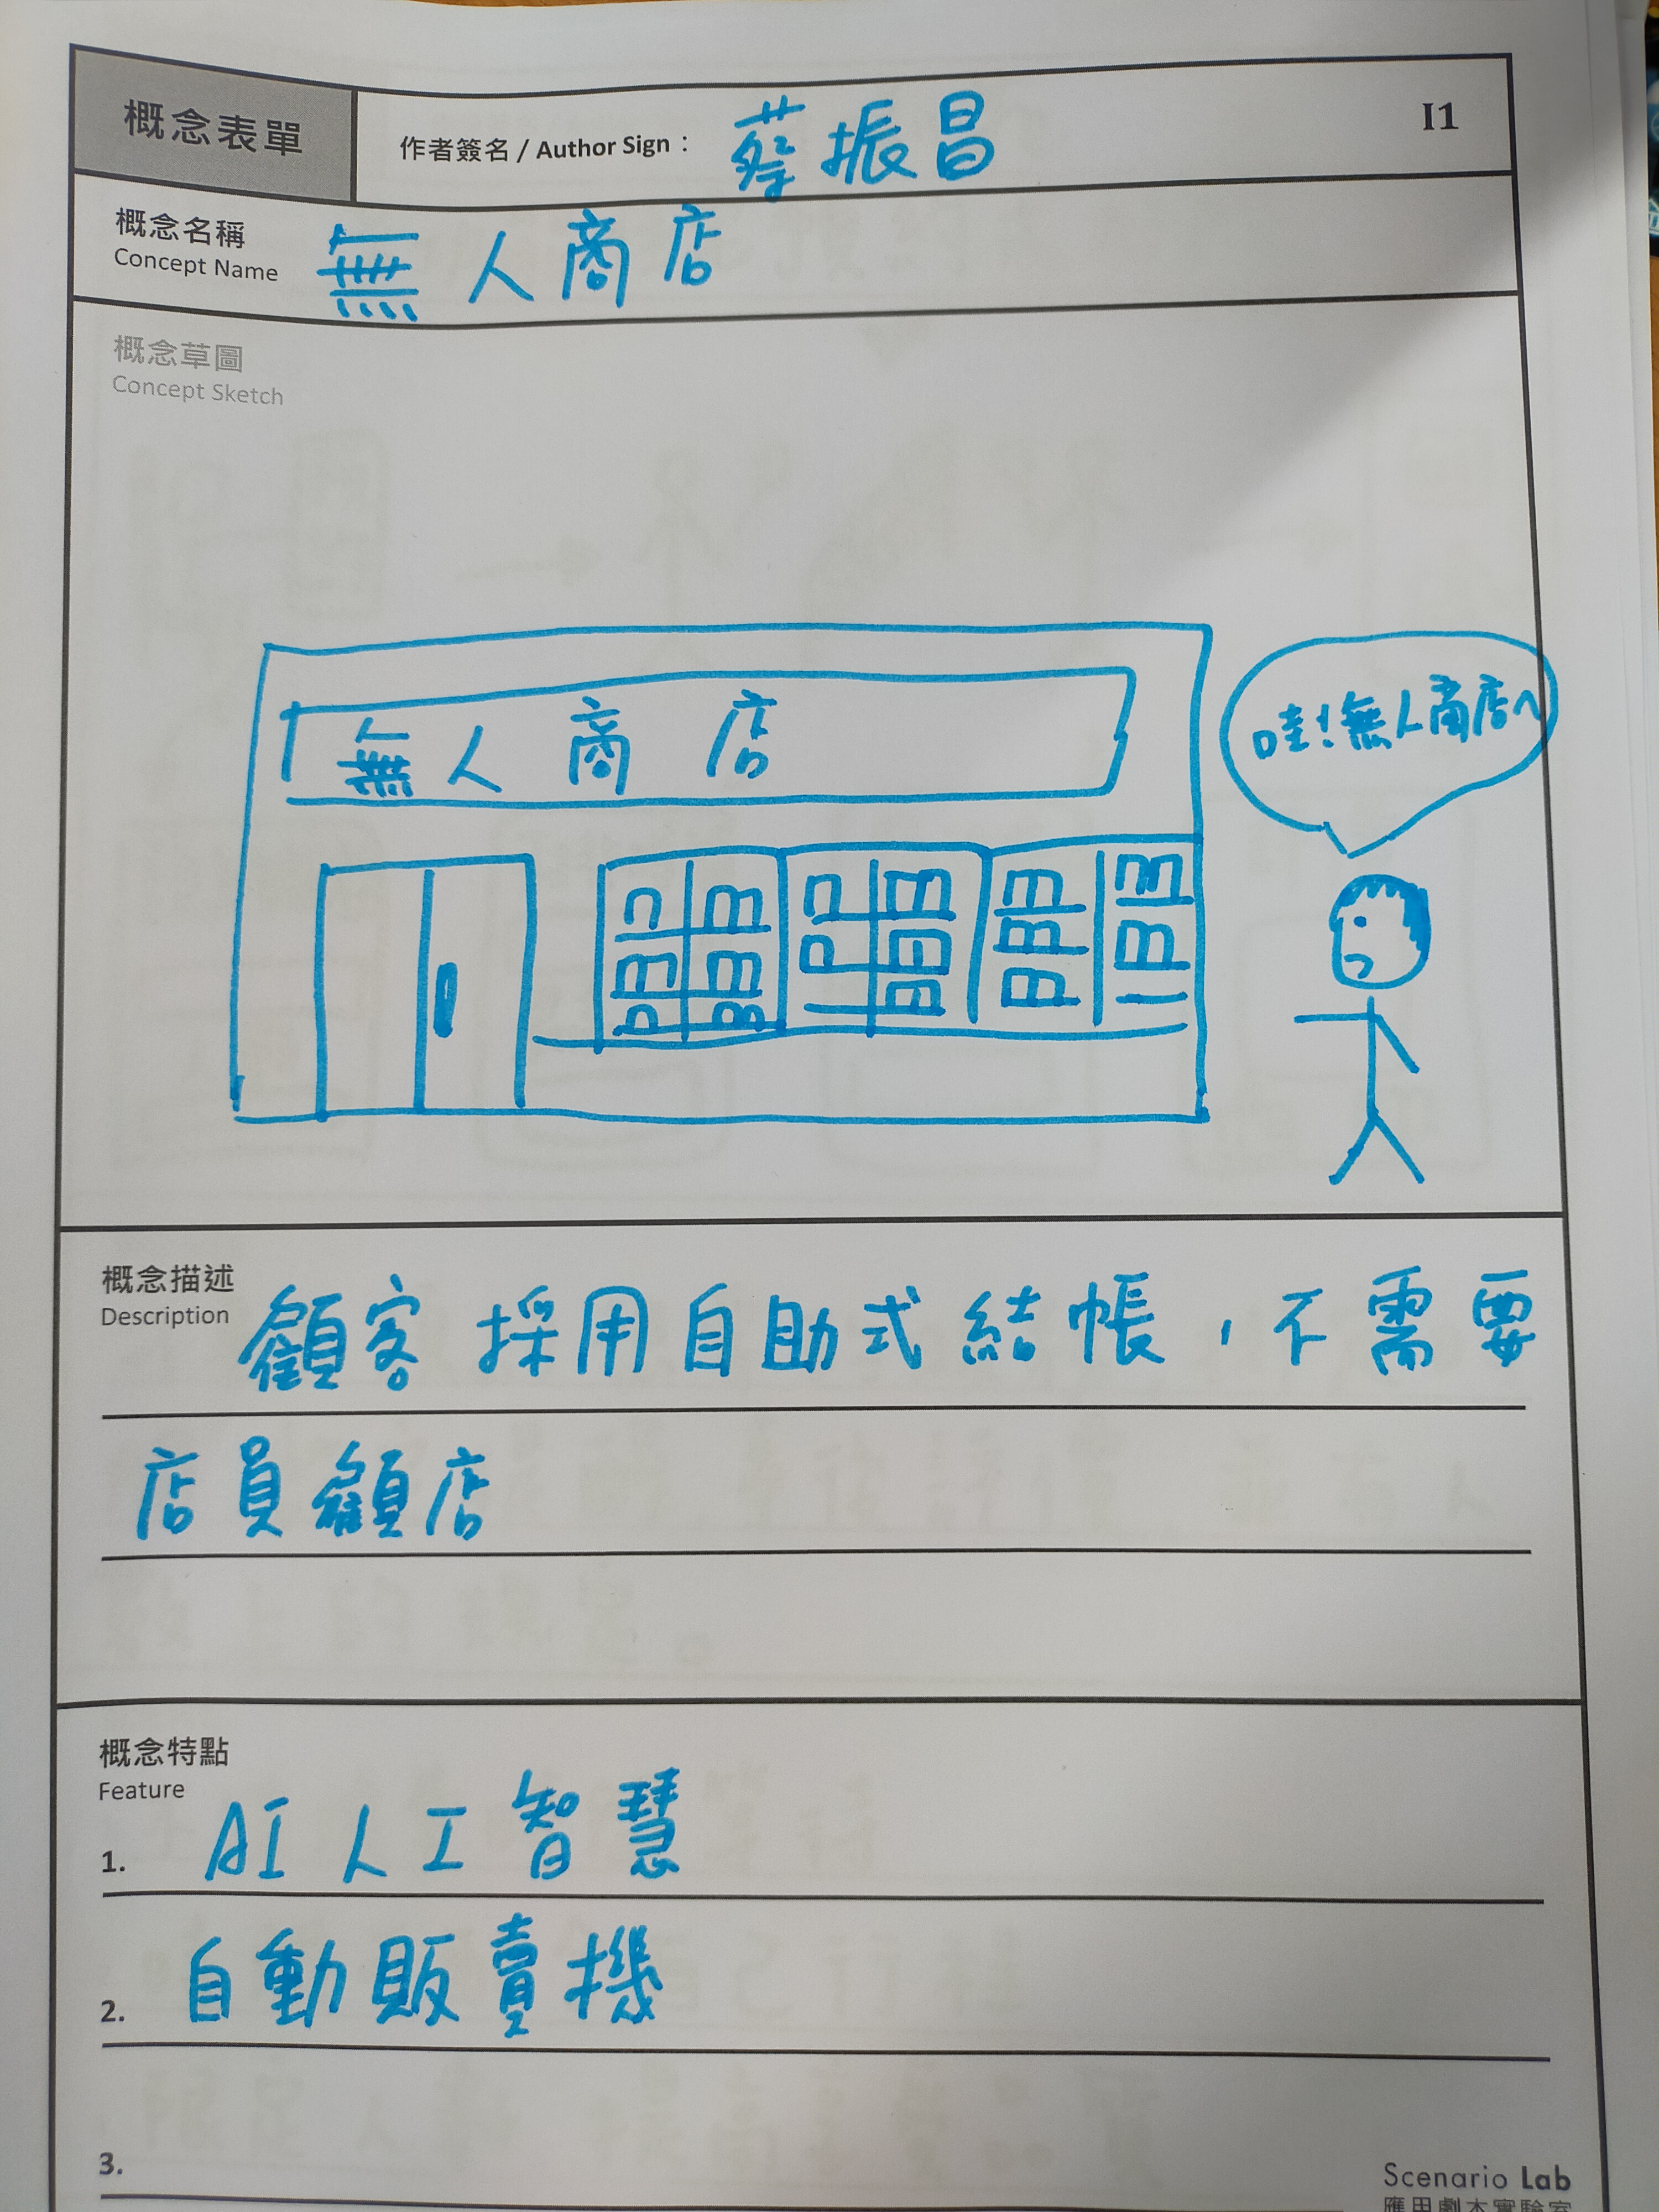 概念表單
作者簽名 / Author Sign：蔡振昌
I1
概念名稱
Concept Name
無人商店
概念草圖
Concept Sketch
無人商店
哇!無人商店~
概念描述
Description
顧客採用自助式結帳，不需要
店員顧店
概念特點
Feature
1. AI人工智慧
2. 自動販賣機
3.
Scenario Lab
應用劇本實驗室